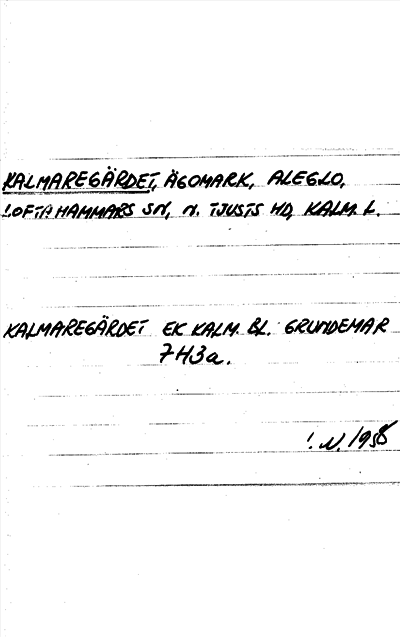 KALMAREGÄRDET, ÄGOMARK, ALEGLO,
LOFTAHAMMARS SN, N. TJUSTS HD, KALM. L.
KALMAREGÄRDET EK KALM. BL. GRUNDEMAR
7H3a.
I. N. 1958